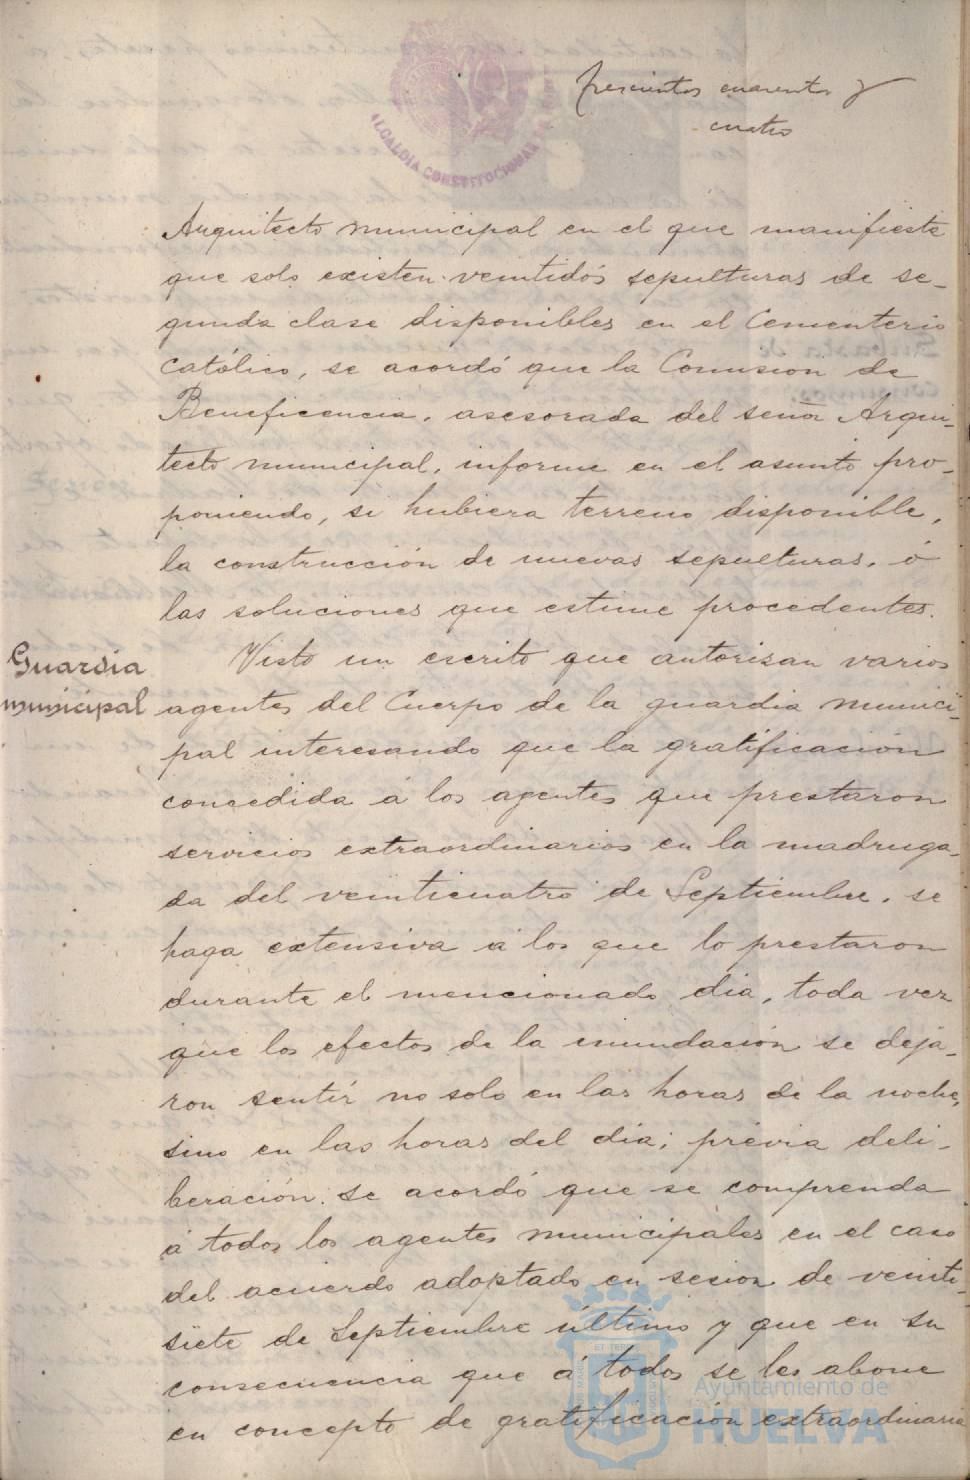 ALCALDIA CONSTITUCIONAL
trescientos cuarenta y
cuatro
Arquitecto municipal en el que manifieste
que solo existen veintidós sepulturas de se-
gunda clase disponibles en el Cementerio
Católico, se acordó que la Comision de
Beneficencia, asesorada del señor Arqui-
tecto municipal, informe en el asunto pro-
poniendo, si hubiera terreno disponible,
la construcción de nuevas sepulturas, ó
las soluciones que estime procedentes.
Guardia
municipal
Visto un escrito que autorizan varios
agentes del Cuerpo de la guardia munici-
pal interesando que la gratificación
concedida á los agentes que prestaron
servicios extraordinarios en la madruga-
da del veinticuatro de Septiembre, se
haga extensiva á los que lo prestaron
durante el mencionado dia, toda vez
que los efectos de la inundación se deja-
ron sentir no solo en las horas de la noche,
sino en las horas del dia; prévia deli-
beración, se acordó que se comprenda
á todos los agentes municipales en el caso
del acuerdo adoptado en sesion de veinti-
siete de Septiembre último y que en su
consecuencia que á todos se les abone
en concepto de gratificación extraordinaria
Ayuntamiento de
HUELVA